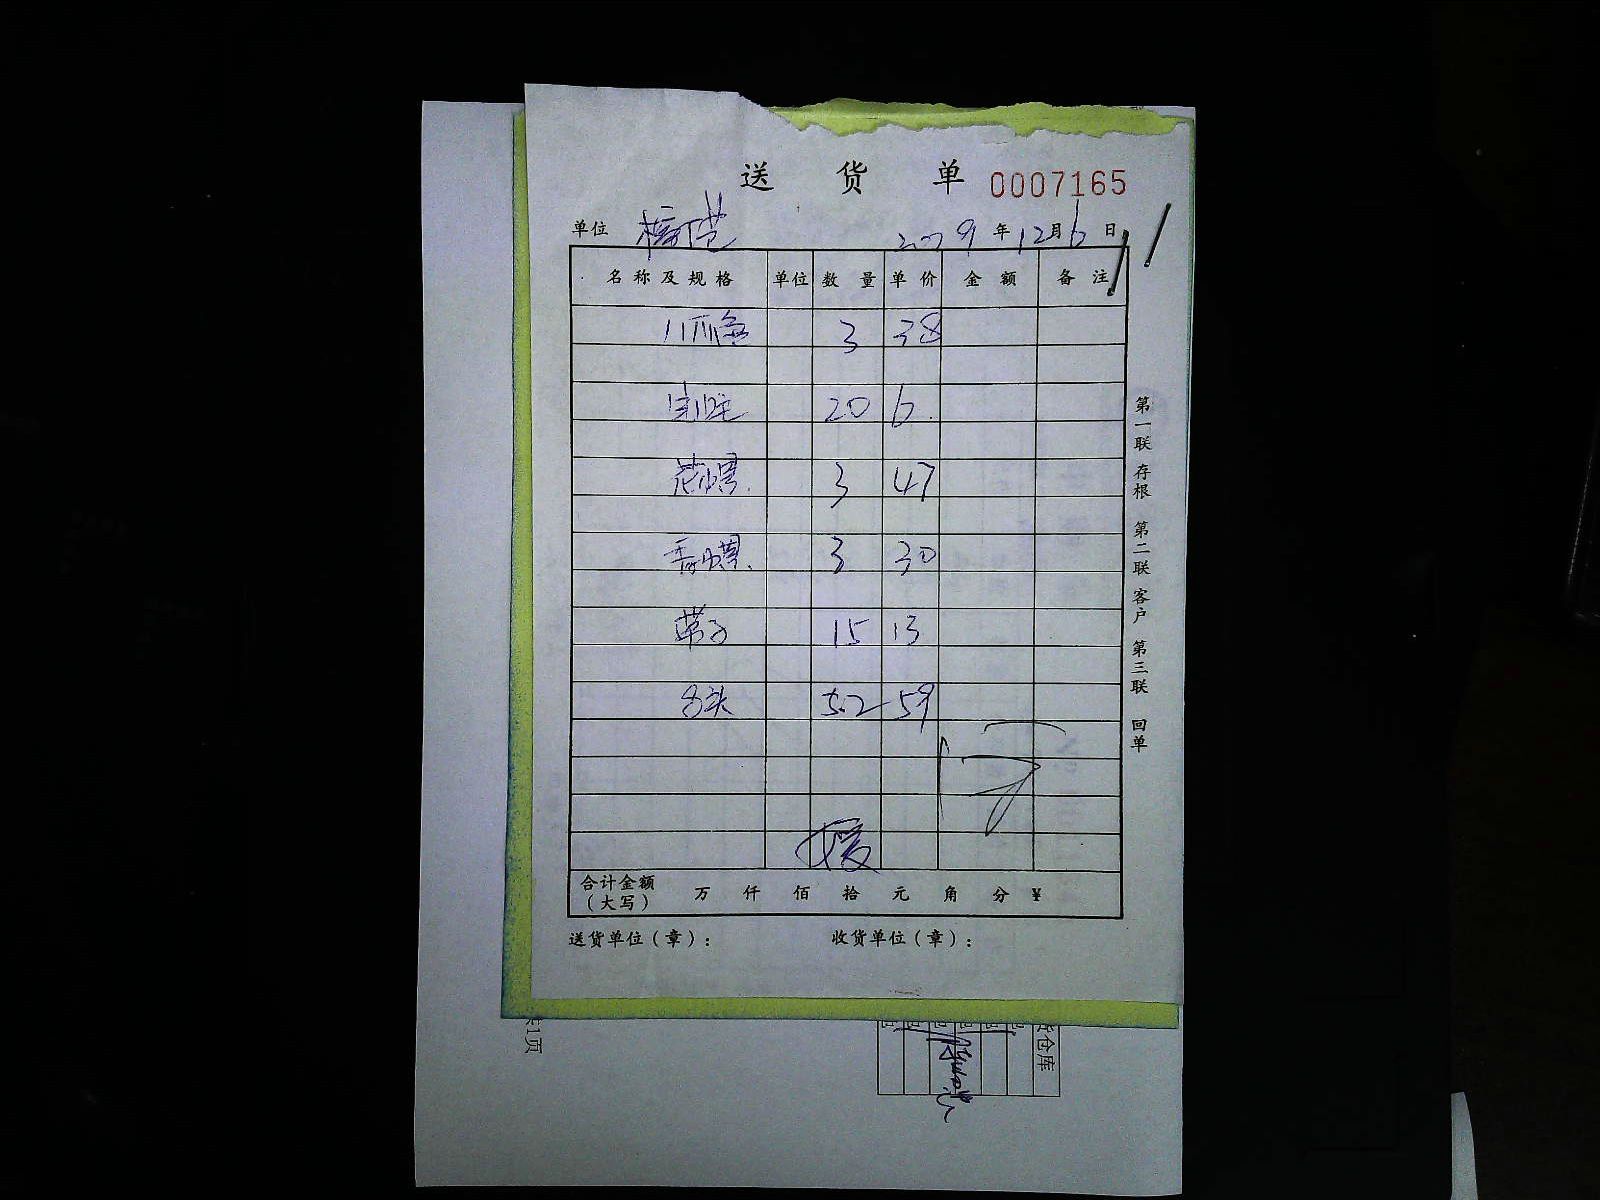 送 货 单 0007165
单位 2019 年 12 月 6 日
名称及规格 单位 数量 单价 金额 备注
八爪鱼 3 38
20 6.
花螺 3 47
香螺 3 30
带子 15 13
5.2 59
合计金额 (大写) 万 仟 佰 拾 元 角 分 ¥
送货单位(章): 收货单位(章):
第一联 存根 第二联 客户 第三联 回单
仓库
1页